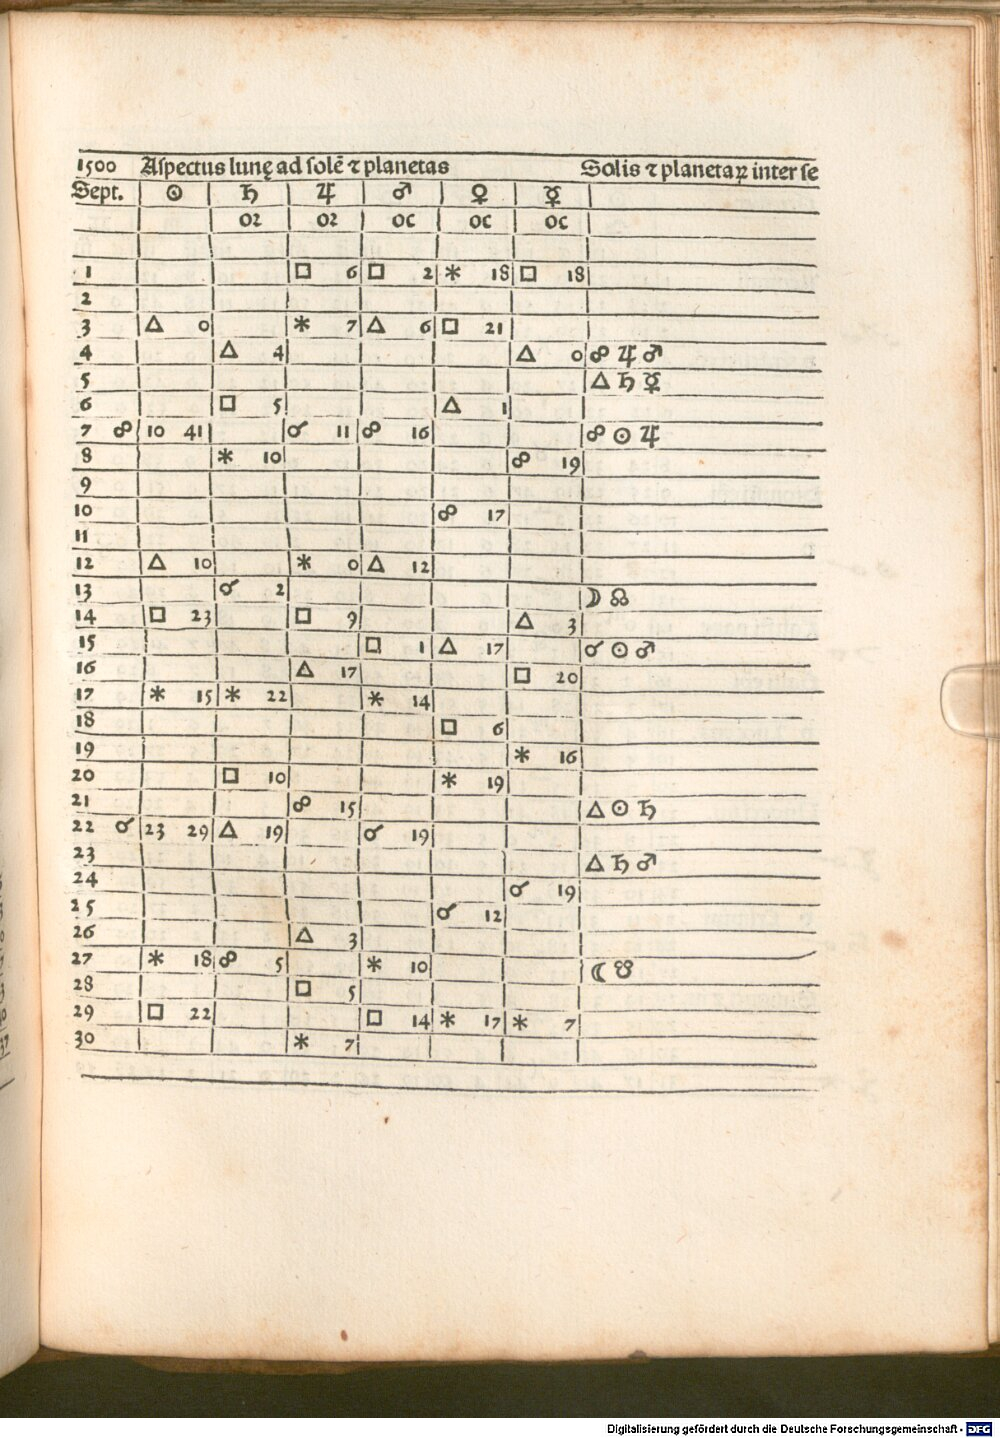 1500 Aſpectus lunę ad ſolē ⁊ planetas Solis ⁊ planetaꝝ inter ſe
Sept. ☉ ♄ ♃ ♂ ♀ ☿
oꝛ oꝛ oc oc oc
1 □ 6 □ 2 ⚹ 18 □ 18
2
3 △ 0 ⚹ 7 △ 6 □ 21
4 △ 4 △ 0 ☍ ♃ ♂
5 △ ♄ ☿
6 □ 5 △ 1
7 ☍ 10 41 ☌ 11 ☍ 16 ☍ ☉ ♃
8 ⚹ 10 ☍ 19
9
10 ☍ 17
11
12 △ 10 ⚹ 0 △ 12
13 ☌ 2 ☽ ☊
14 □ 23 □ 9 △ 3
15 □ 1 △ 17 ☌ ☉ ♂
16 △ 17 □ 20
17 ⚹ 15 ⚹ 22 ⚹ 14
18 □ 6
19 ⚹ 16
20 □ 10 ⚹ 19
21 ☍ 15 △ ☉ ♄
22 ☌ 23 29 △ 19 ☌ 19
23 △ ♄ ♂
24 ☌ 19
25 ☌ 12
26 △ 3
27 ⚹ 18 ☍ 5 ⚹ 10 ☾ ☋
28 □ 5
29 □ 22 □ 14 ⚹ 17 ⚹ 7
30 ⚹ 7
Digitalisierung gefördert durch die Deutsche Forschungsgemeinschaft - DFG